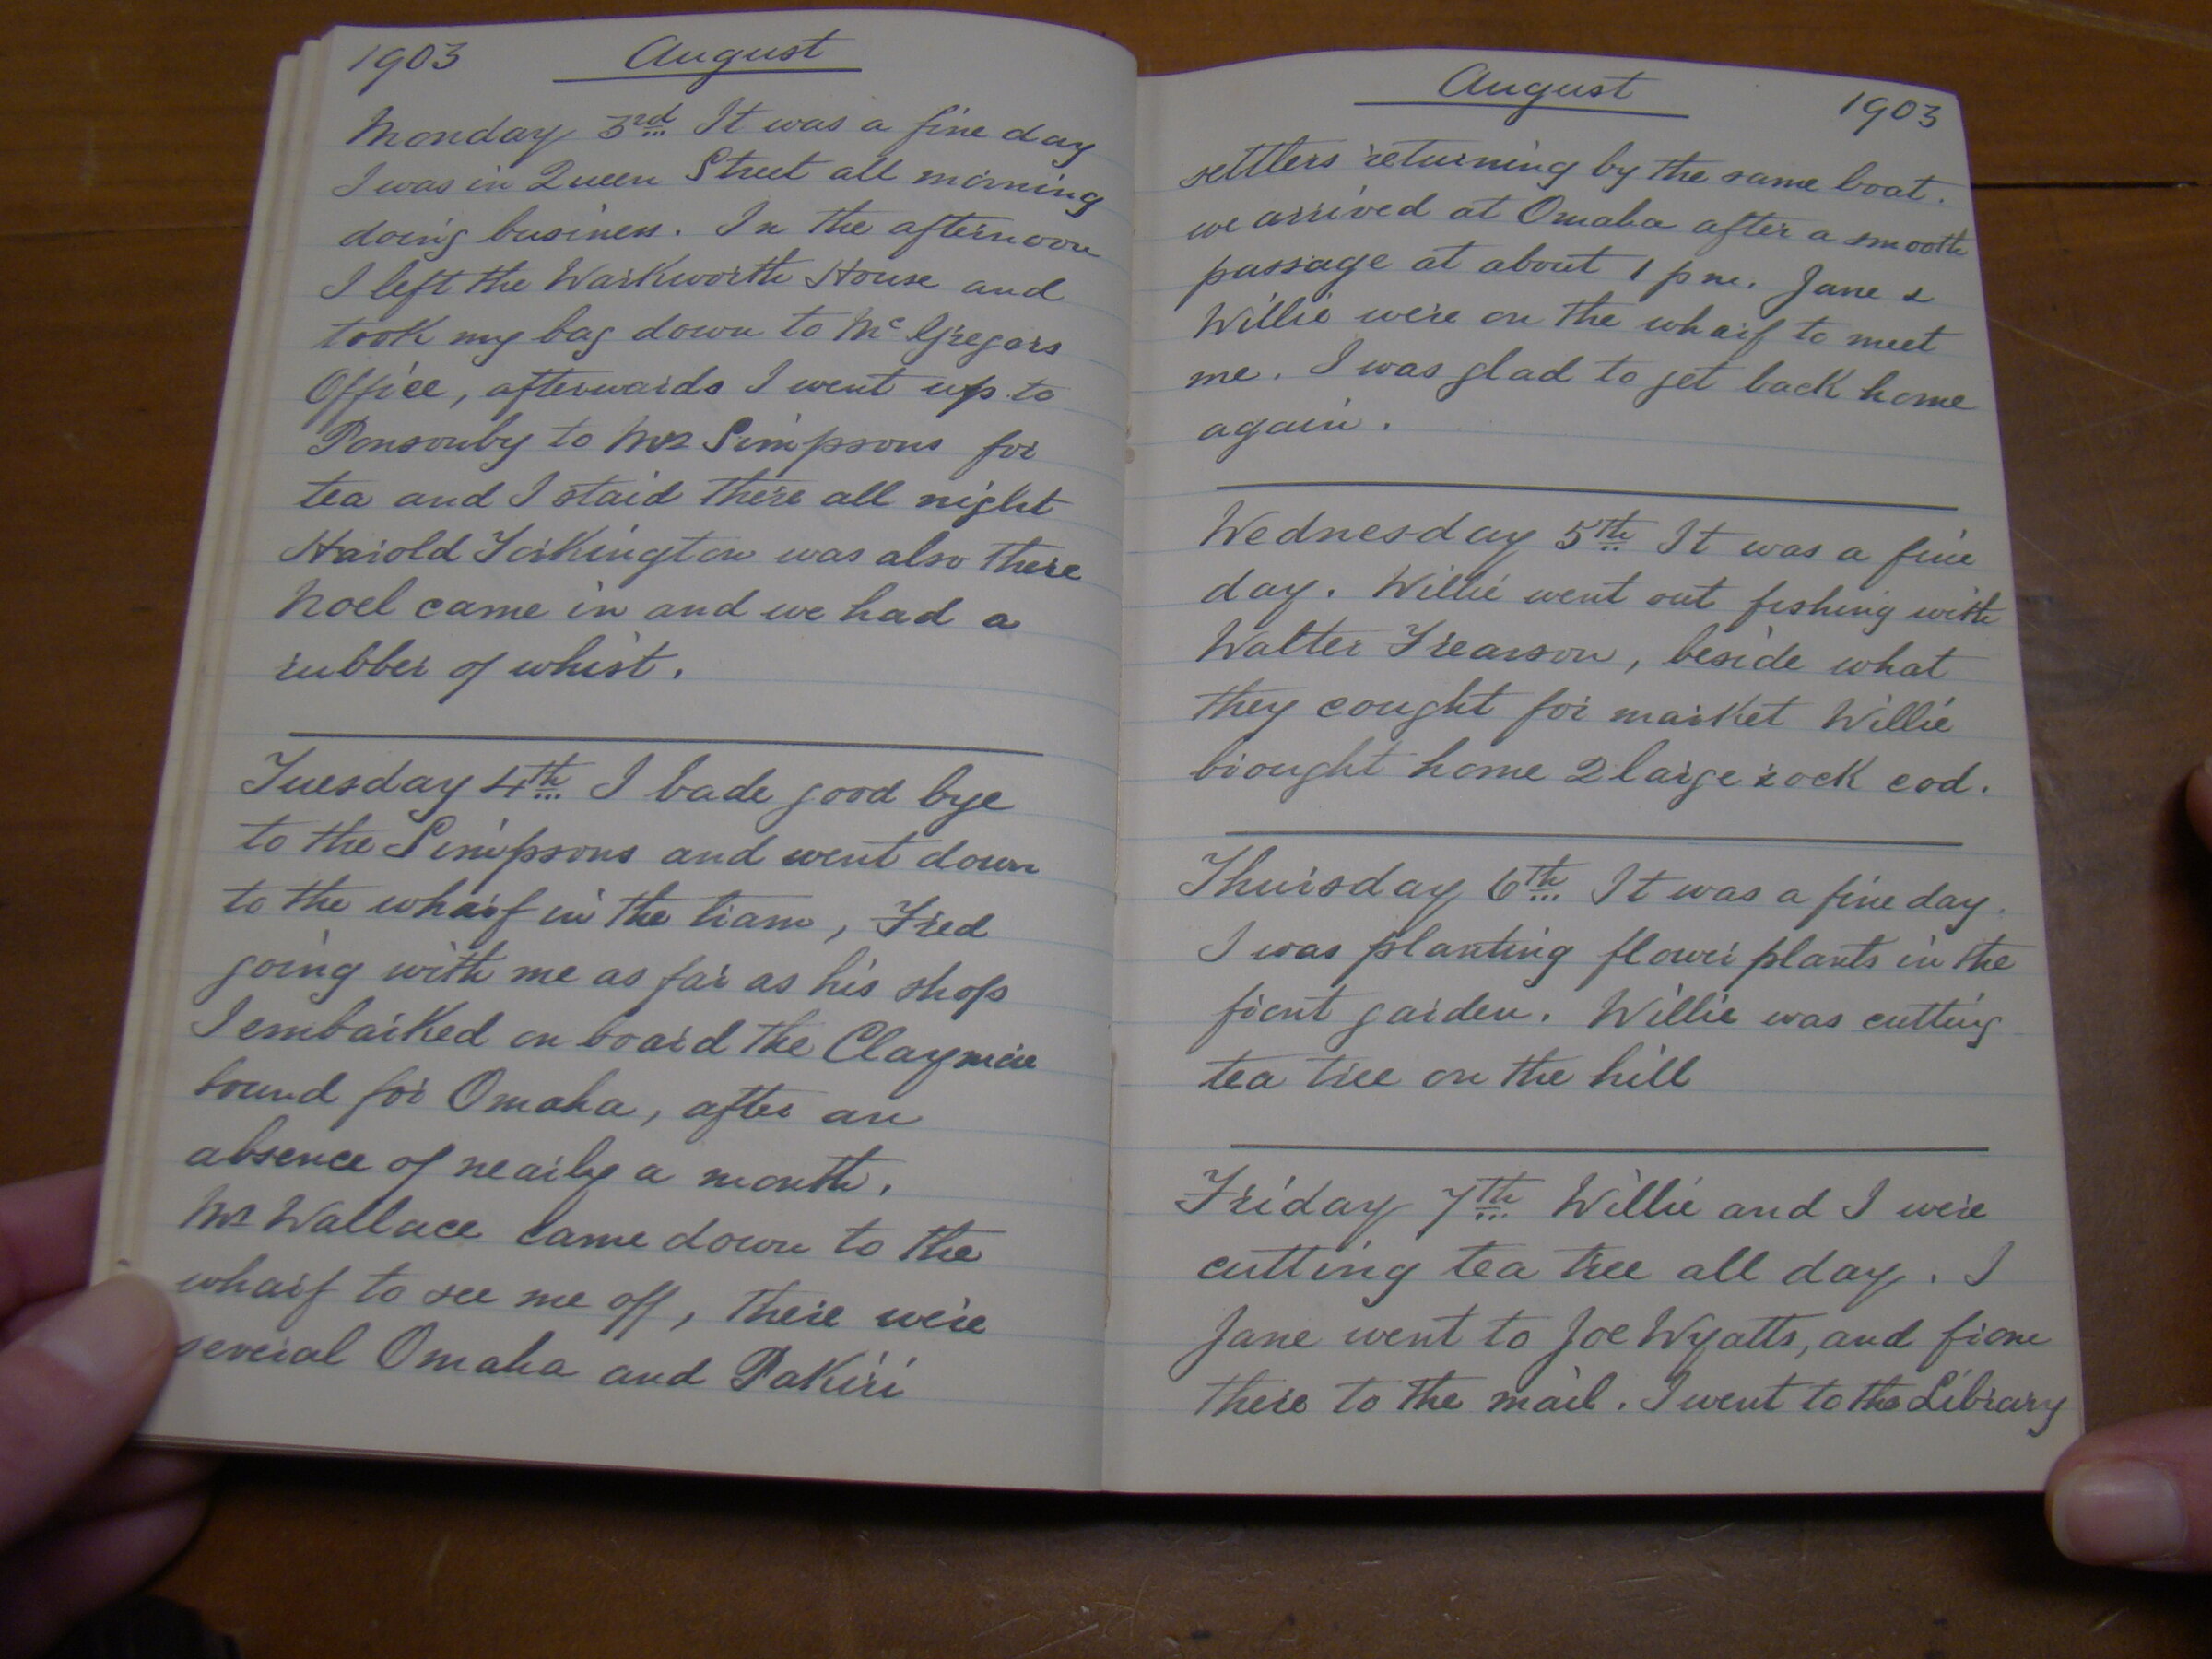 1903 August
Monday 3rd It was a fine day
I was in Queen Street all morning
doing business. In the afternoon
I left the Warkworth House and
took my bag down to McGregors
Office, afterwards I went up to
Ponsonby to Mrs Simpsons for
tea and I staid there all night
Harold Torkington was also there
Noel came in and we had a
rubber of whist.
Tuesday 4th I bade good bye
to the Simpsons and went down
to the wharf in the tram, Fred
going with me as far as his shop
I embarked on board the Claymore
bound for Omaha, after an
absence of nearly a month.
Mr Wallace came down to the
wharf to see me off, there were
several Omaha and Pakiri
August 1903
settlers returning by the same boat.
we arrived at Omaha after a smooth
passage at about 1 pm. Jane &
Willie were on the wharf to meet
me. I was glad to get back home
again.
Wednesday 5th It was a fine
day. Willie went out fishing with
Walter Frearson, beside what
they cought for market Willie
brought home 2 large rock cod.
Thursday 6th It was a fine day.
I was planting flower plants in the
front garden. Willie was cutting
tea tree on the hill
Friday 7th Willie and I were
cutting tea tree all day. I
Jane went to Joe Wyatts, and from
there to the mail. I went to the Library